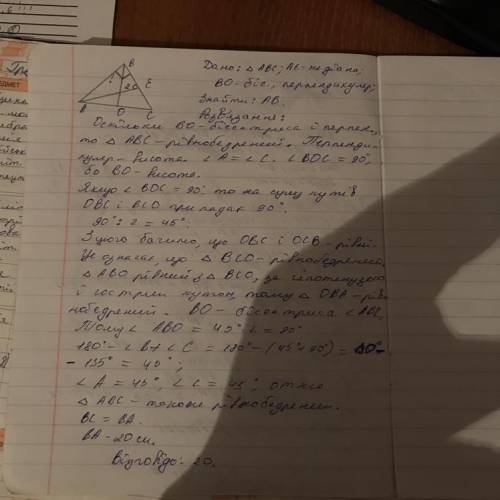 Дано: △ ABC; AE - медіана;
BO - біс., перпендикуляр;
Знайти: AB.
Розв'язання:
Оскільки BO - бісектриса і перпен,
то △ ABC - рівнобедрений. Перпенди-
куляр - висота. ∠A = ∠C. ∠BOC = 90°,
бо BO - висота.
Якщо ∠BOC = 90° то на суму кутів
OBC і BCO припадає 90°.
90° : 2 = 45°.
З цього бачимо, що OBC і OCB - рівні.
Це означає, що △ BCO - рівнобедрений.
△ ABO рівний з △ BCO, за гіпотенузою
і гострим кутом, тому △ OBA - рів
нобедрений. BO - бісектриса ∠ABC,
Тому ∠ABO = 45° ∠ = 90°
180° - ∠B + ∠C = 180° - (45° + 90°) =
- 135° = 45°;
∠A = 45°, ∠C = 45°, отже
△ ABC - також рівнобедрений.
BC = BA.
BA - 20 см.
Відповідь: 20.
B
E
20
O
C